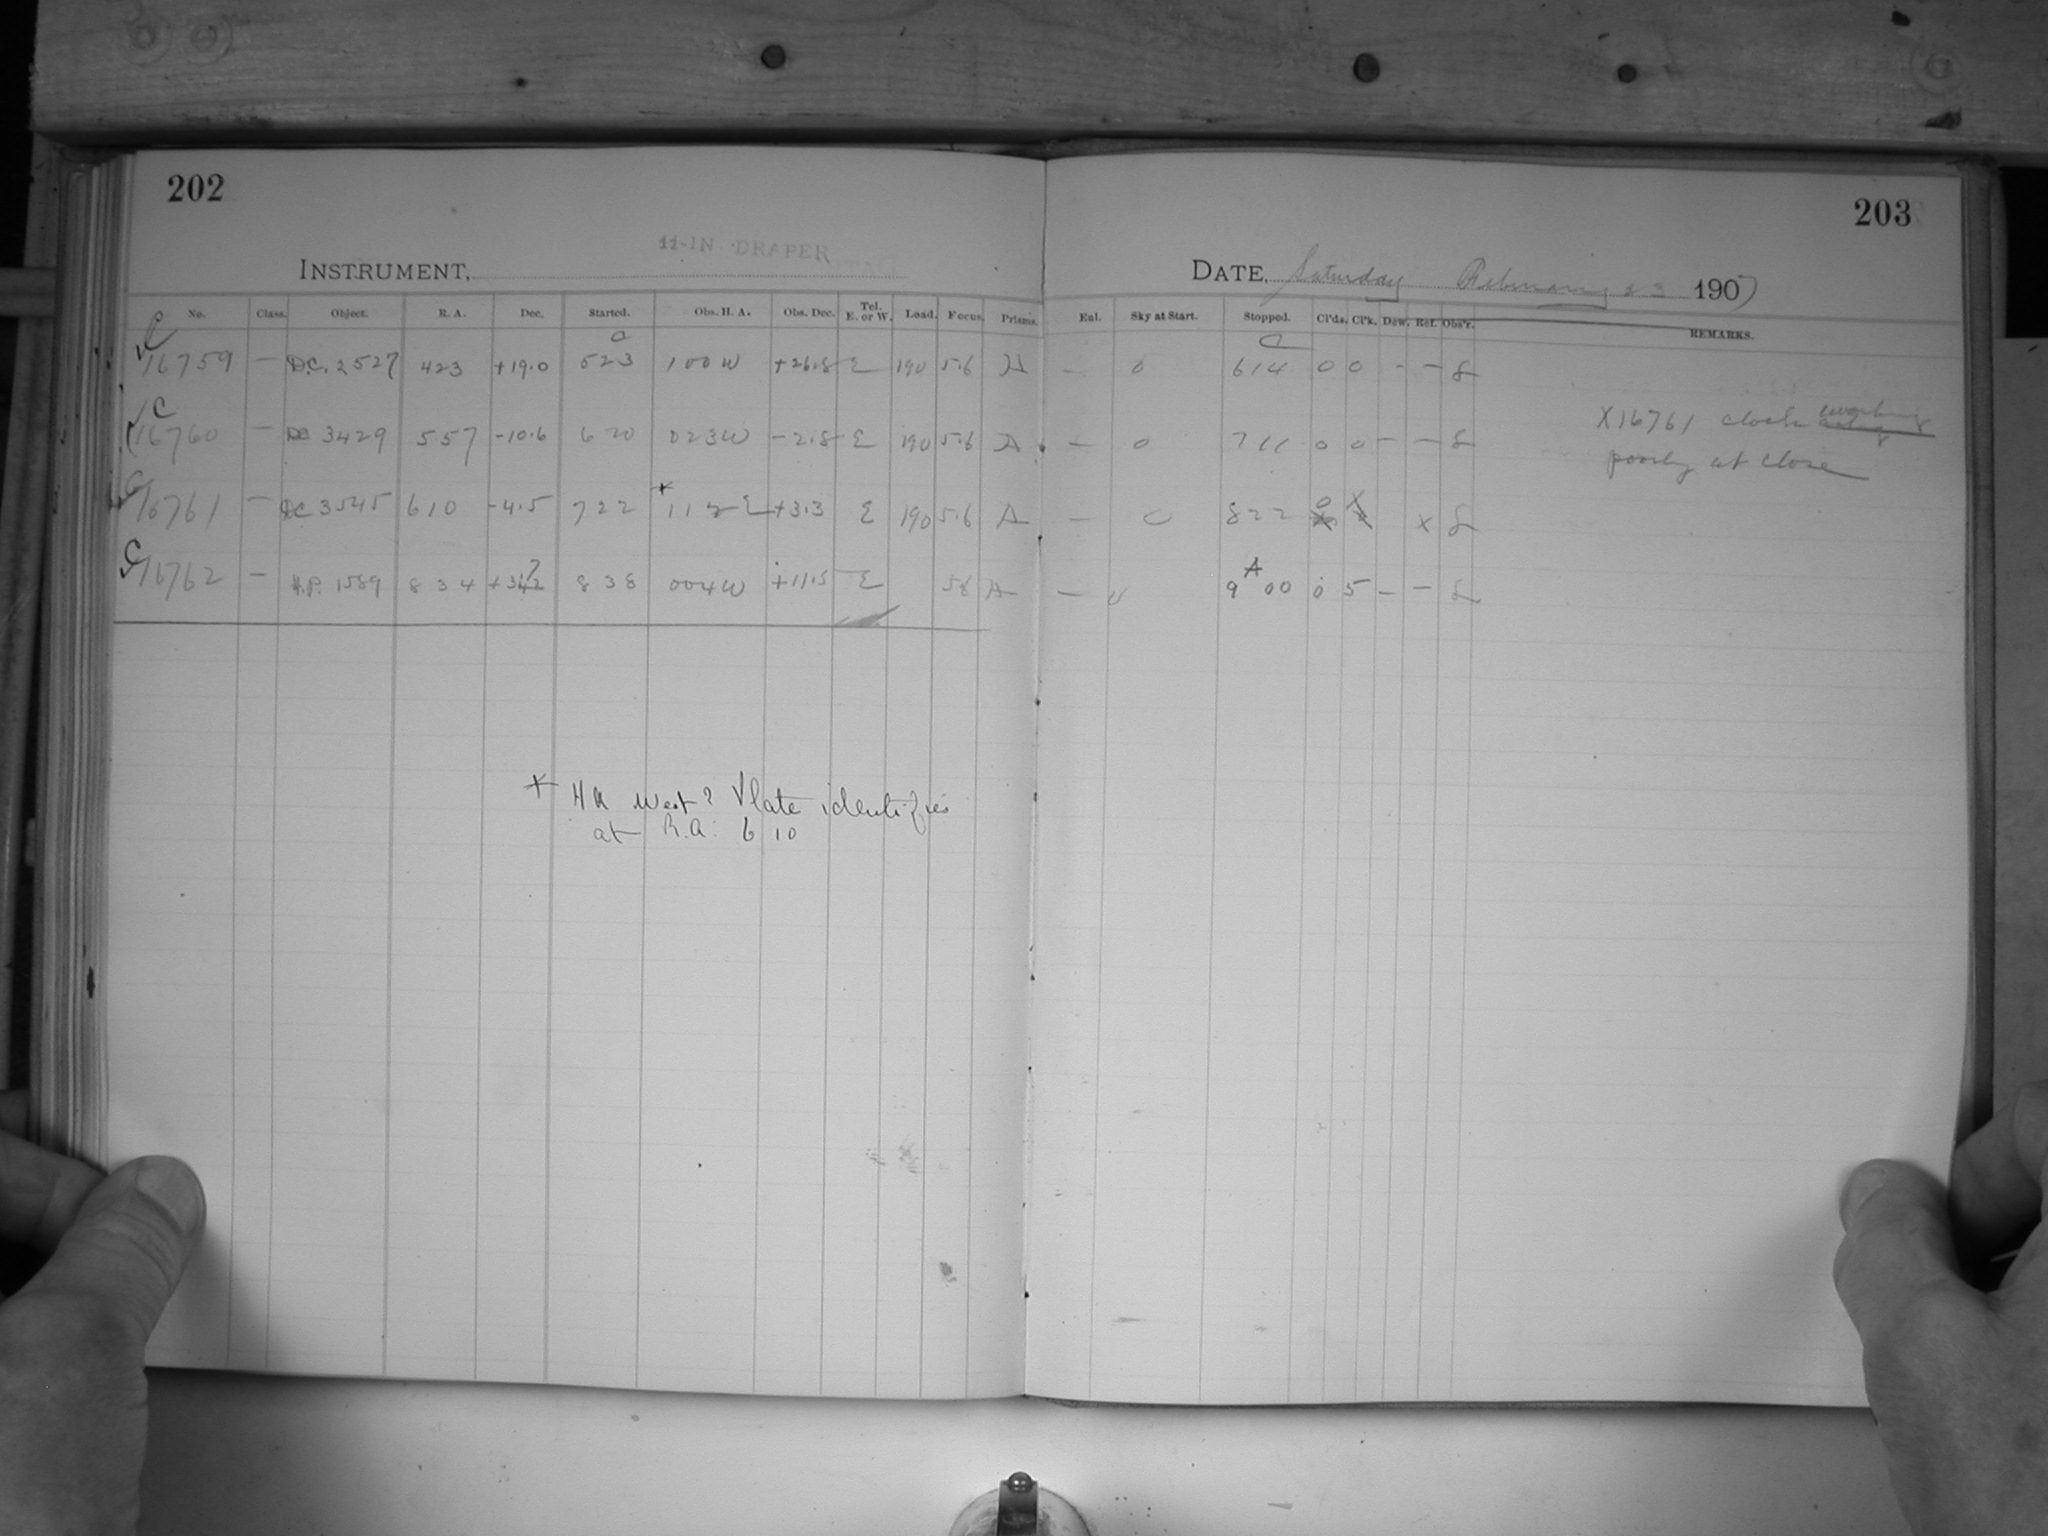 202
203
11-IN DRAPER
INSTRUMENT,
DATE, Saturday February 23 1907
No. Class. Object. R. A. Dec. Started. Obs. H. A. Obs. Dec. Tel. E. or W. Load. Focus. Prisms. Enl. Sky at Start. Stopped. Cl'ds. Cl'k. Dew. Ref. Obs'r. REMARKS.
C 16759 — D.C. 2527 423 +19.0 523 100W +26.8 E 190 5.6 A — 0 614 0 0 - - 8
C 16760 — DC 3429 557 -10.6 620 023W -2.8 E 190 5.6 A — 0 711 0 0 - - 8
X16761 clock working
poorly at close
C 16761 — DC 3545 610 -4.5 722 * 112 E +3.3 E 190 5.6 A — 0 822 0 X X 8
C 16762 — H.P. 1589 834 838 004W +11.5 E 58 A — 0 9 00 0 5 - - 8
* HA West? Plate identifies
at R.A. 6 10